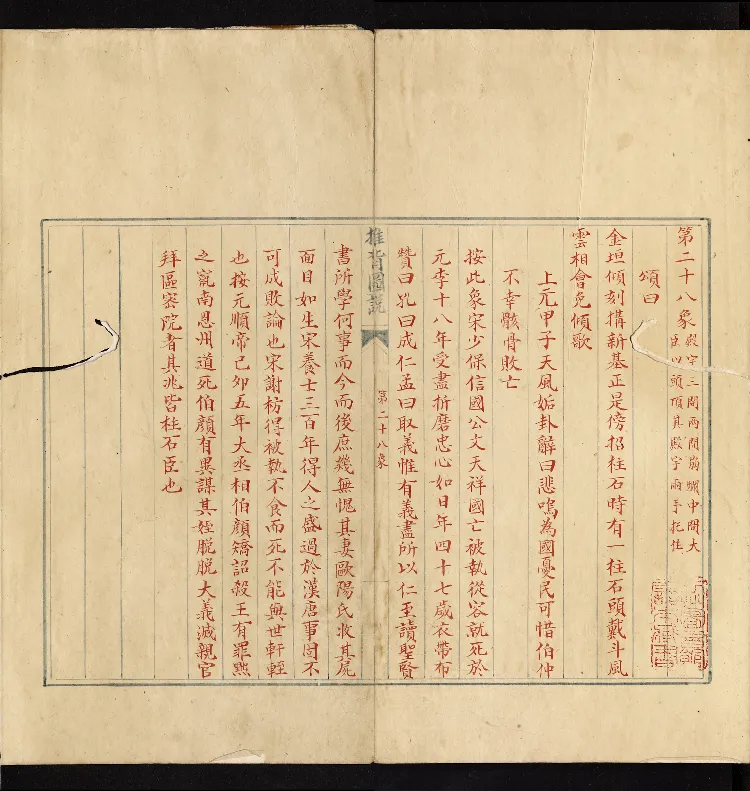 第二十八象 殿宇三間兩間崩壞中間大
臣以頭頂其殿宇兩手托住
頌曰
金垣傾刻搆新基正是傍招柱石時有一柱石頭戴斗風
雲相會免傾欹
上元甲子天風姤卦辭曰悲鳴為國憂民可惜伯仲
不幸骸骨敗亡
按此象宋少保信國公文天祥國亡被執從容就死於
元季十八年受盡折磨忠心如日年四十七歲衣帶布
贊曰孔曰成仁孟曰取義惟有義盡所以仁至讀聖賢
推背圖說
第二十八象
書所學何事而今而後庶幾無愧其妻歐陽氏收其屍
面目如生宋養士三百年得人之盛過於漢唐事固不
可成敗論也宋謝枋得被執不食而死不能與世軒輊
也按元順帝己卯五年大丞相伯顏矯詔殺王有罪黜
之竄南恩州道死伯顏有異謀其姪脫脫大義滅親官
拜區密院者其兆皆柱石臣也